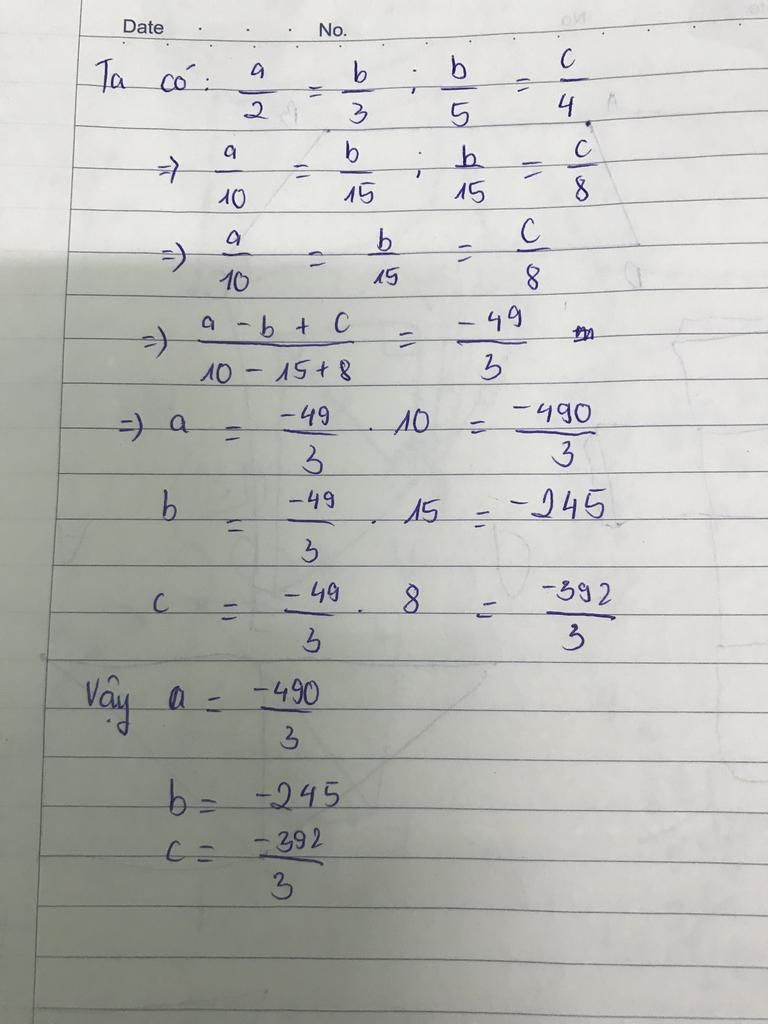 Date . . . No. . . . . . .
Ta có: a/2 = b/3 ; b/5 = c/4
=> a/10 = b/15 ; b/15 = c/8
=> a/10 = b/15 = C/8
=> (a - b + c)/(10 - 15 + 8) = -49/3
=> a = -49/3 . 10 = -490/3
b = -49/3 . 15 = -245
c = -49/3 . 8 = -392/3
Vậy a = -490/3
b = -245
c = -392/3